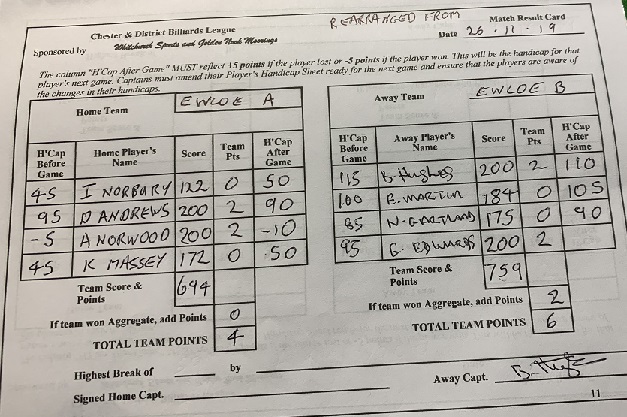 Chester & District Billiards League
REARRANGED FROM
Match Result Card
Sponsored by Whitchurch Sports and Golden Nook Moorings
Date 26-11-19
The column "H'Cap After Game" MUST reflect +5 points if the player lost or -5 points if the player won. This will be the handicap for that
player's next game. Captains must amend their Player's Handicap Sheet ready for the next game and ensure that the players are aware of
the changes in their handicaps.
Home Team EWLOE A
H'Cap Before Game Home Player's Name Score Team Pts H'Cap After Game
45 I NORBURY 122 0 50
95 D ANDREWS 200 2 90
-5 A NORWOOD 200 2 -10
45 K MASSEY 172 0 50
Team Score & Points 694
If team won Aggregate, add Points 0
TOTAL TEAM POINTS 4
Away Team EWLOE B
H'Cap Before Game Away Player's Name Score Team Pts H'Cap After Game
115 B. Hughes 200 2 110
100 E. MARTIN 184 0 105
85 N. GARTLAND 175 0 90
95 G. EDWARDS 200 2
Team Score & Points 759
If team won Aggregate, add Points 2
TOTAL TEAM POINTS 6
Highest Break of by
Signed Home Capt.
Away Capt.
11